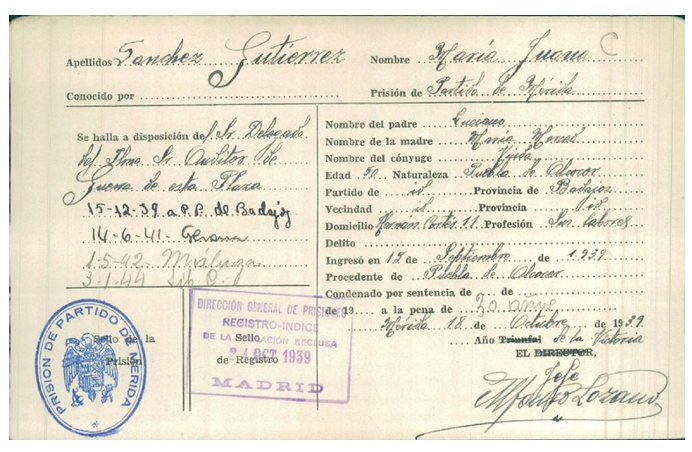 Apellidos Sanchez Gutierrez Nombre María Juana C
Conocido por Prisión de Partido de Mérida
Se halla a disposición del Sr. Delegado
del Iltmo. Sr. Auditor de
Guerra de esta Plaza
15-12-39 a P.P. de Badajoz
14-6-41 Gerona
1-5-42 Málaga
3-1-44 Lib C.
Nombre del padre Luciano
Nombre de la madre María
Nombre del cónyuge Viuda
Edad 50 Naturaleza Puebla de Alcocer
Partido de id. Provincia de Badajoz
Vecindad id. Provincia id.
Domicilio Hernan Cortés 11 Profesión Sus labores
Delito
Ingresó en 12 de Septiembre de 1.939
Procedente de Puebla de Alcocer
Condenado por sentencia de de
de 19 a la pena de 30 años
Mérida 18 de Octubre de 1939.
Año Triunfal de la Victoria
EL DIRECTOR,
Jefe
Alfonso Lozano
Sello de la
Prisión
PRISION DE PARTIDO DE MERIDA
Sello
de Registro
DIRECCIÓN GENERAL DE PRISIONES
REGISTRO-INDICE
DE LA POBLACIÓN RECLUSA
24 OCT 1939
MADRID